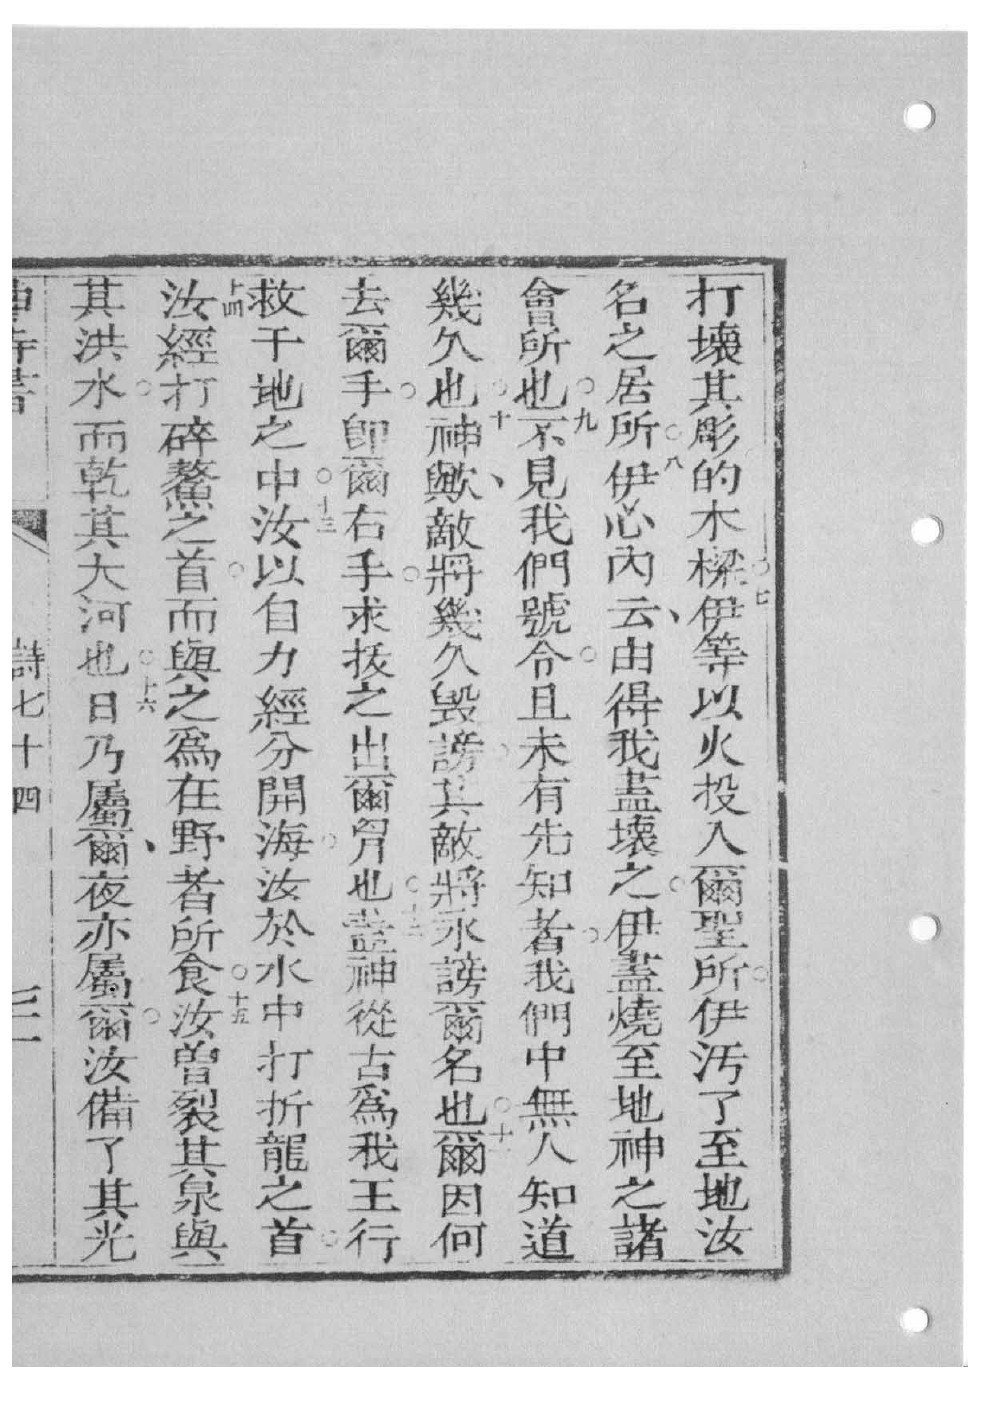 打壞其彫的木樑○七伊等以火投入爾聖所○伊汚了至地汝
名之居所○八伊心內云、由得我盡壞之○伊盡燒至地神之諸
會所也○九不見我們號令○且未有先知者○我們中無人知道
幾久也○十神歟、敵將幾久毀謗○其敵將永謗爾名也○十一爾因何
去爾手○卽爾右手○求拔之出爾胷也○十二蓋神從古爲我王行○
救于地之中○十三汝以自力經分開海○汝於水中打折龍之首
十四汝經打碎鰲之首○而與之爲在野者所食○十五汝曾裂其泉與
其洪水○而乾其大河也○十六日乃屬爾、夜亦屬爾○汝備了其光
詩七十四